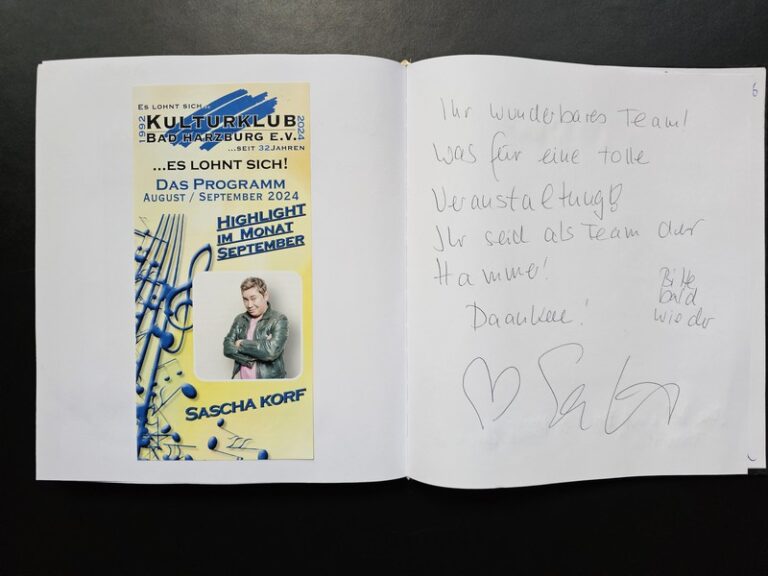 Es lohnt sich...
1992
Kulturklub
2024
Bad Harzburg e.V.
...seit 32Jahren
...es lohnt sich!
Das Programm
August / September 2024
Highlight
im Monat
September
Sascha Korf
6
Ihr wunderbares Team!
Was für eine tolle
Veranstaltung!
Ihr seid als Team der
Hammer!
Daankee!
Bitte
bald
wieder